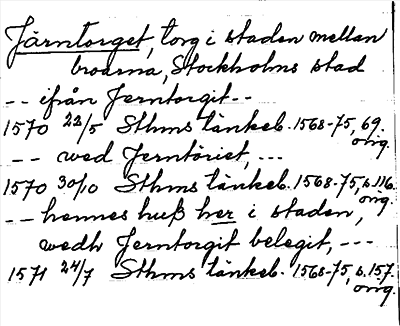 Järntorget, torg i staden mellan
broarna, Stockholms stad
-- ifrån Jerntorgit --
1570 23/5 Sthms tänkeb. 1568-75, 69.
orig.
-- wed Jerntöriet, ---
1570 30/10 Sthms tänkeb. 1568-75, s. 116.
orig.
-- hennes huß her i staden,
wedh Jerntorgit belegit, ---
1571 24/7 Sthms tänkeb. 1568-75, s. 157.
orig.